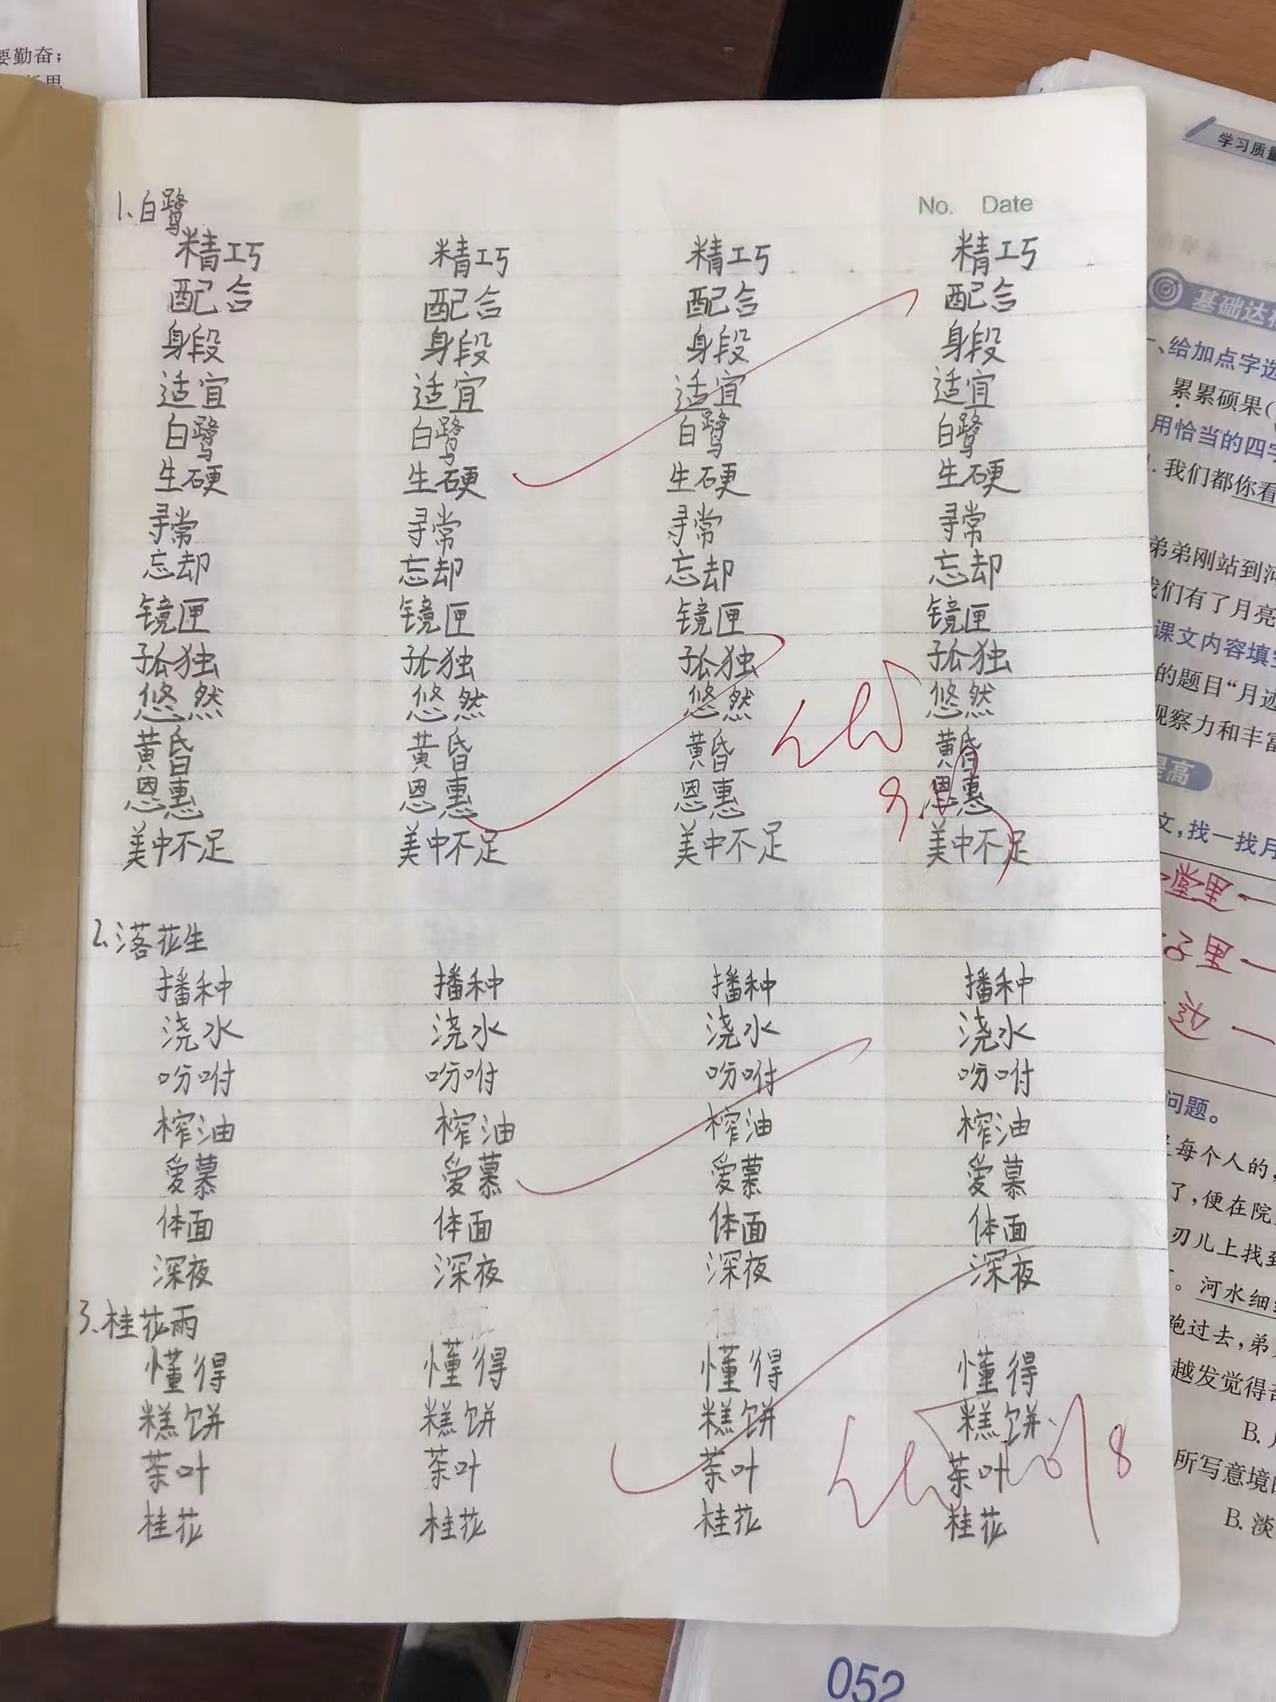 要勤奋；
No. Date
1.白鹭
精巧 精巧 精巧 精巧
配合 配合 配合 配合
身段 身段 身段 身段
适宜 适宜 适宜 适宜
白鹭 白鹭 白鹭 白鹭
生硬 生硬 生硬 生硬
寻常 寻常 寻常 寻常
忘却 忘却 忘却 忘却
镜匣 镜匣 镜匣 镜匣
孤独 孤独 孤独 孤独
悠然 悠然 悠然 悠然
黄昏 黄昏 黄昏 黄昏
恩惠 恩惠 恩惠 恩惠
美中不足 美中不足 美中不足 美中不足
2.落花生
播种 播种 播种 播种
浇水 浇水 浇水 浇水
吩咐 吩咐 吩咐 吩咐
榨油 榨油 榨油 榨油
爱慕 爱慕 爱慕 爱慕
体面 体面 体面 体面
深夜 深夜 深夜 深夜
3.桂花雨
懂得 懂得 懂得 懂得
糕饼 糕饼 糕饼 糕饼
茶叶 茶叶 茶叶 茶叶
桂花 桂花 桂花 桂花
学习质量
基础达
一、给加点字选
累累硕果(
用恰当的四字
1. 我们都你看
弟弟刚站到河
我们有了月亮
课文内容填空
的题目“月迹
观察力和丰富
提高
文，找一找月
堂里
子里
边
问题。
每个人的，
了，便在院
刃儿上找到
。河水细
跑过去，弟
越发觉得奇
B.
所写意境
B. 淡
052